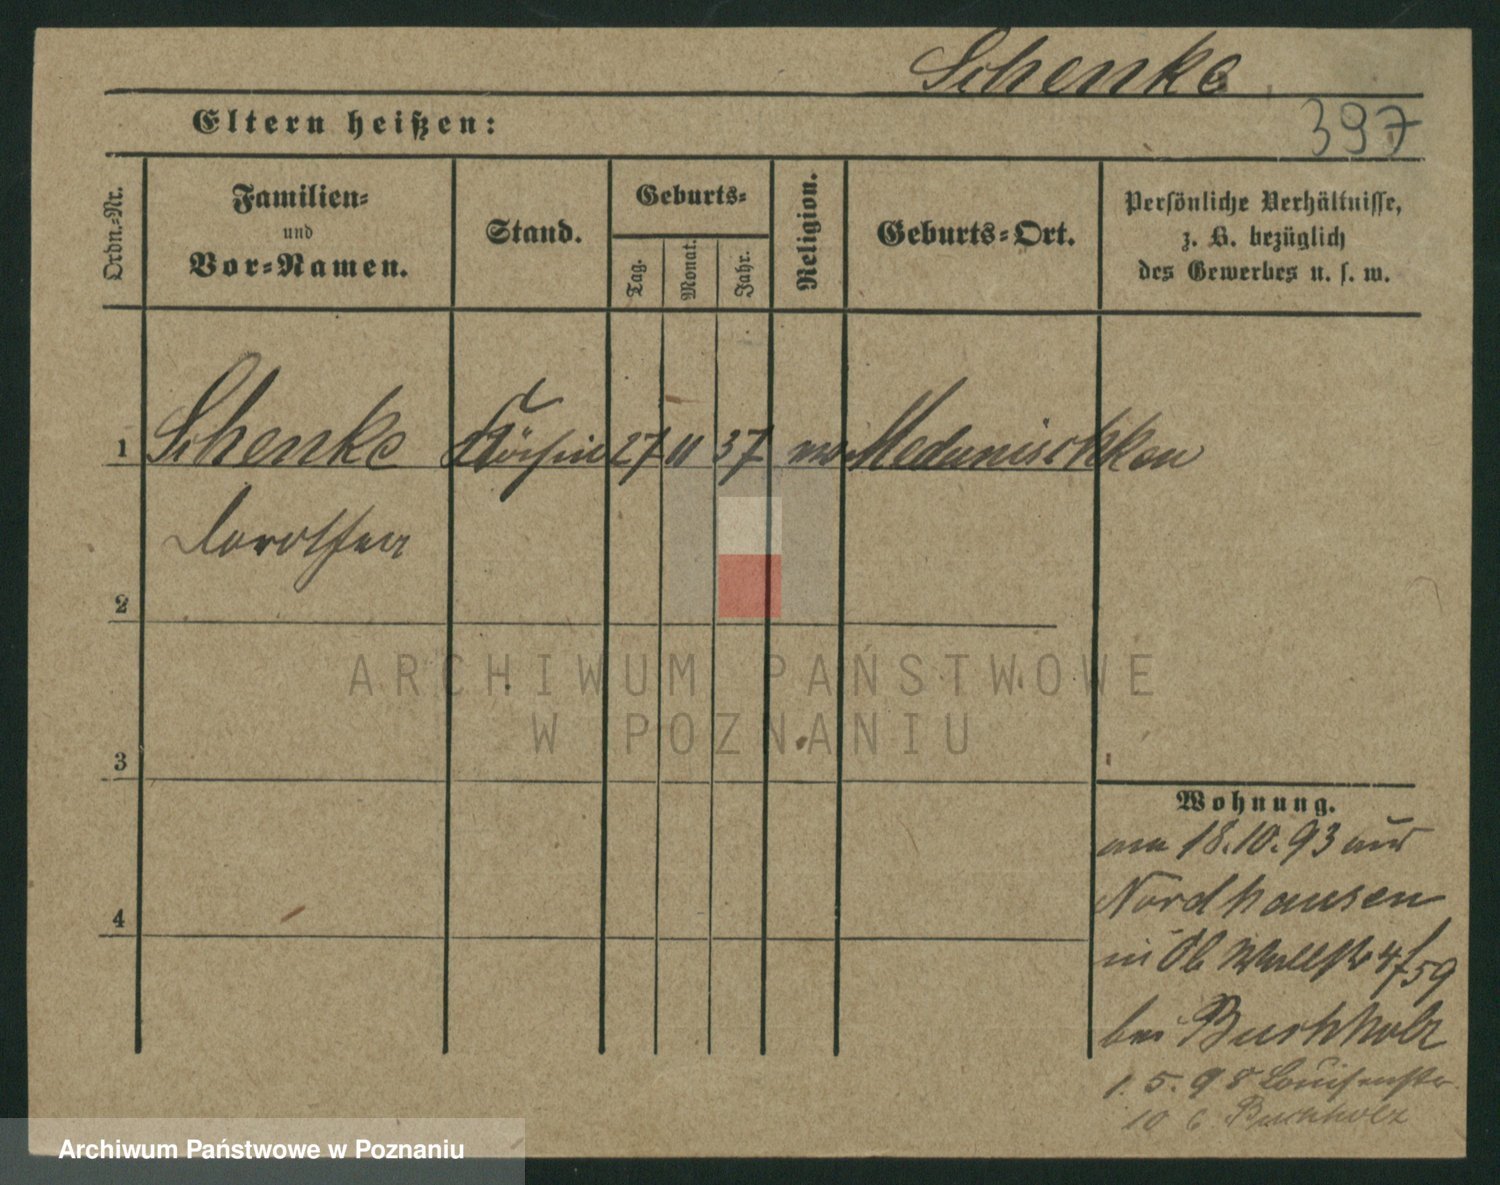 Schenke
Eltern heißen:
397
Ordn.-Nr.
Familien-
und
Vor-Namen.
Stand.
Geburts-
Tag.
Monat.
Jahr.
Religion.
Geburts-Ort.
Persönliche Verhältnisse,
z. B. bezüglich
des Gewerbes u. s. w.
1 Schenke Köchin 27 11 37 Medunischken
Dorothea
2
3
4
ARCHIWUM PAŃSTWOWE
W POZNANIU
Wohnung.
am 18.10.93 aus
Nordhausen
in Ob Wallstr 4/59
bei Buchholz
1. 5. 98 Louisenstr
10 b Buchholz
Archiwum Państwowe w Poznaniu